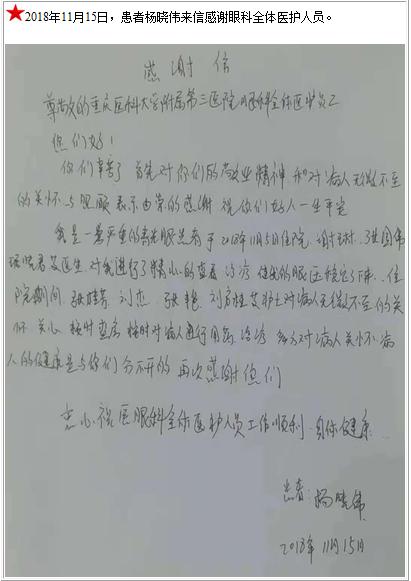 2018年11月15日，患者杨晓伟来信感谢眼科全体医护人员。
感谢信
尊敬的重庆医科大学附属第三医院眼科全体医护员工
您们好！
你们辛苦了 首先对你们的敬业精神 和对病人无微不至
的关怀与照顾表示由衷的感谢 祝你们好人一生平安
我是一着严重的青光眼患者于2018年11月5日住院,
医生,对我进行了精心的查看 治疗 使我的眼压稳定了下来.住
院期间, 刘杰, 护士对病人无微不至的关
怀 关心 按时查房 按时对病人进行用药 治疗 多方对病人关怀 病
人的健康是与你们分不开的 再次感谢您们
忠心祝医眼科全体医护人员工作顺利.身体健康
患者: 杨晓伟
2018年11月15日